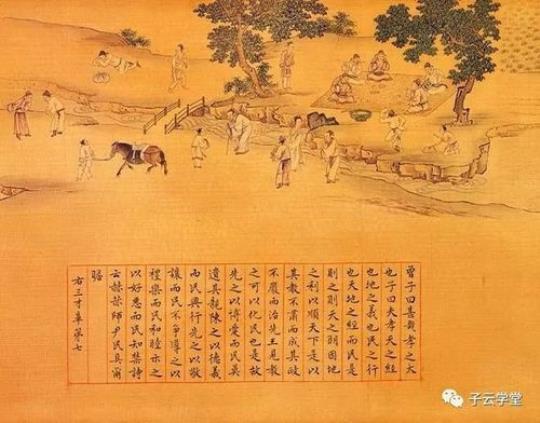 曾子曰甚哉孝之大
也子曰夫孝天之經
也地之義也民之行
也天地之經而民是
則之則天之明因地
之利以順天下是以
其教不肅而成其政
不嚴而治先王見教
之可以化民也是故
先之以博愛而民莫
遺其親陳之以德義
而民興行先之以敬
讓而民不爭導之以
禮樂而民和睦示之
以好惡而民知禁詩
云赫赫師尹民具爾
瞻
右三才章第七
子云学堂